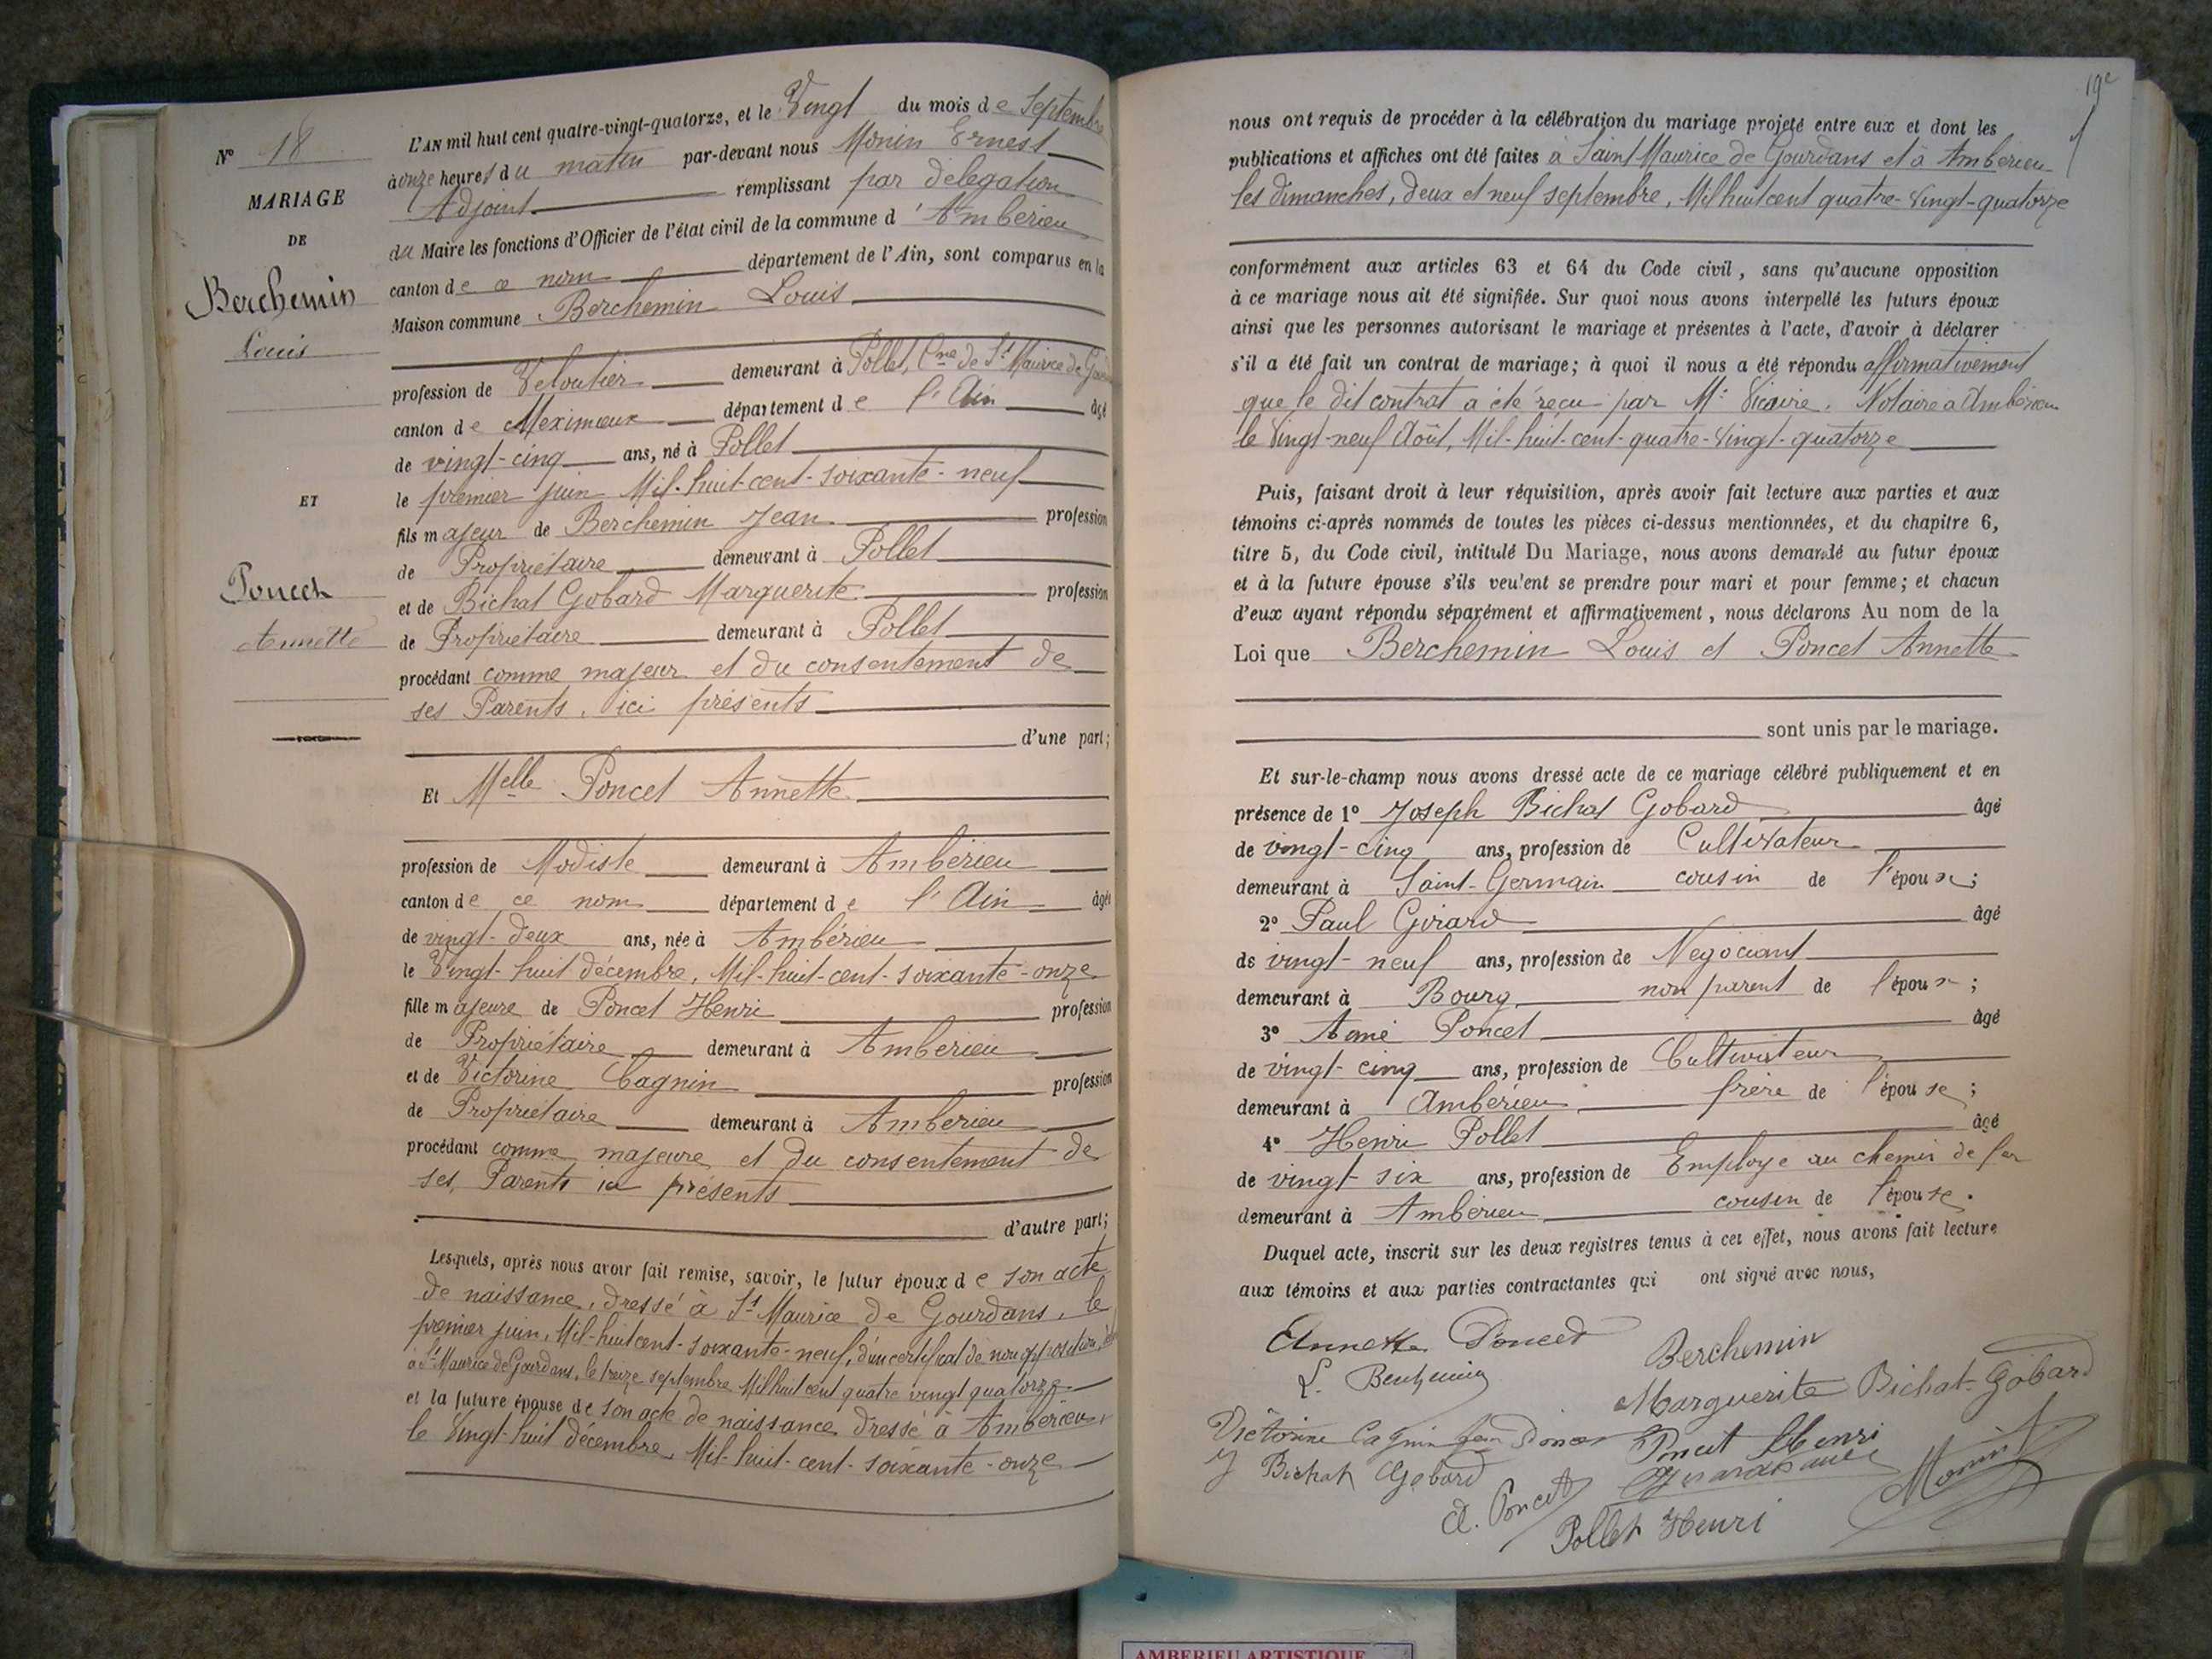 N° 18
MARIAGE
DE
Berchemin
Louis
ET
Poncet
Annette
L'AN mil huit cent quatre-vingt-quatorze, et le Vingt du mois de Septembre
à onze heures du matin par-devant nous Monin Ernest
Adjoint remplissant par délégation
du Maire les fonctions d'Officier de l'état civil de la commune d'Ambérieu
canton de ce nom département de l'Ain, sont comparus en la
Maison commune Berchemin Louis
profession de Veloutier demeurant à Pollet, Cne de St Maurice de
canton de Meximieux département de l'Ain âgé
de vingt-cinq ans, né à Pollet
le premier juin Mil-huit-cent-soixante-neuf
fils majeur de Berchemin Jean profession
de Propriétaire demeurant à Pollet
et de Bichat Gobard Marguerite profession
de Propriétaire demeurant à Pollet
procédant comme majeur et du consentement de
ses Parents, ici présents
d'une part;
Et Melle Poncet Annette
profession de Modiste demeurant à Ambérieu
canton de ce nom département de l'Ain âgée
de vingt-deux ans, née à Ambérieu
le Vingt-huit décembre, Mil-huit-cent-soixante-onze
fille majeure de Poncet Henri profession
de Propriétaire demeurant à Ambérieu
et de Victorine Cagnin profession
de Propriétaire demeurant à Ambérieu
procédant comme majeure et du consentement de
ses Parents ici présents
d'autre part;
Lesquels, après nous avoir fait remise, savoir, le futur époux de son acte
de naissance, dressé à St Maurice de Gourdans, le
premier juin, Mil-huit cent-soixante-neuf, d'un certificat de non opposition,
à St Maurice de Gourdans, le treize septembre Mil huit cent quatre vingt quatorze
et la future épouse de son acte de naissance dressé à Ambérieu,
le Vingt-huit décembre, Mil-huit-cent-soixante-onze
19e
nous ont requis de procéder à la célébration du mariage projeté entre eux et dont les
publications et affiches ont été faites à Saint Maurice de Gourdans et à Ambérieu
les dimanches, deux et neuf septembre, Mil huit cent quatre-Vingt-quatorze
conformément aux articles 63 et 64 du Code civil, sans qu'aucune opposition
à ce mariage nous ait été signifiée. Sur quoi nous avons interpellé les futurs époux
ainsi que les personnes autorisant le mariage et présentes à l'acte, d'avoir à déclarer
s'il a été fait un contrat de mariage; à quoi il nous a été répondu affirmativement
que le dit contrat a été reçu par Me Vicaire, Notaire à Ambérieu
le Vingt-neuf Août, Mil-huit-cent-quatre-Vingt-quatorze
Puis, faisant droit à leur réquisition, après avoir fait lecture aux parties et aux
témoins ci-après nommés de toutes les pièces ci-dessus mentionnées, et du chapitre 6,
titre 5, du Code civil, intitulé Du Mariage, nous avons demandé au futur époux
et à la future épouse s'ils veulent se prendre pour mari et pour femme; et chacun
d'eux ayant répondu séparément et affirmativement, nous déclarons Au nom de la
Loi que Berchemin Louis et Poncet Annette
sont unis par le mariage.
Et sur-le-champ nous avons dressé acte de ce mariage célébré publiquement et en
présence de 1° Joseph Bichat Gobard âgé
de vingt-cinq ans, profession de Cultivateur
demeurant à Saint-Germain cousin de l'époux;
2° Paul Girard âgé
de vingt-neuf ans, profession de Négociant
demeurant à Bourg non parent de l'époux;
3° Aimé Poncet âgé
de vingt-cinq ans, profession de Cultivateur
demeurant à Ambérieu frère de l'épouse;
4° Henri Pollet âgé
de vingt six ans, profession de Employé au chemin de fer
demeurant à Ambérieu cousin de l'épouse.
Duquel acte, inscrit sur les deux registres tenus à cet effet, nous avons fait lecture
aux témoins et aux parties contractantes qui ont signé avec nous,
Annette Poncet
Berchemin
L. Berchemin
Marguerite Bichat-Gobard
Victorine Cagnin
Poncet Henri
J Bichat Gobard
Monin
A. Poncet
Pollet Henri
AMBERIEU ARTISTIQUE